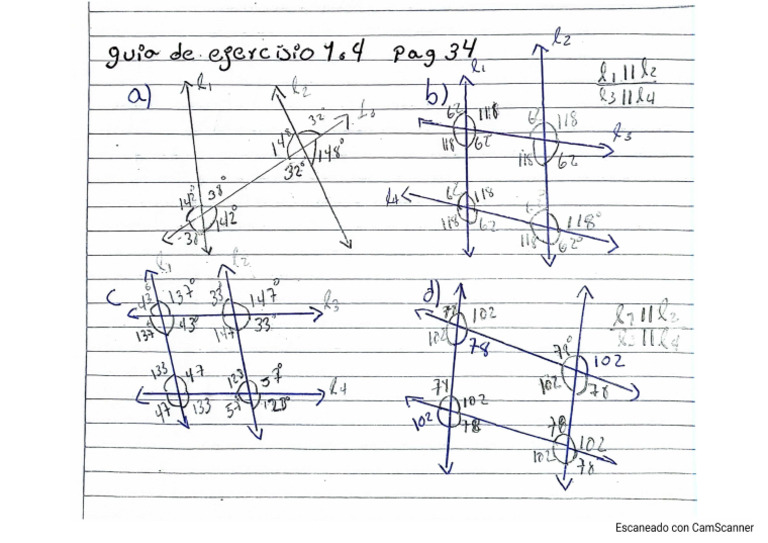 guia de ejercisio 1.4 pag 34
a) l1 l2
32°
148 148°
32°
142° 38°
142°
38°
b) l1 l2 l1 || l2
l3 || l4
62 118 118
l3
118 62 118 62
l4 62 118 118°
118 62 118 62°
c l1 l2
43 137° 33 147° l3
137 43° 147 33°
133 47 123 57° l4
47 133 57 123°
d) l1 || l2
102
102 78
79° 102
102 78
102
102 78
78 102
102 78
Escaneado con CamScanner